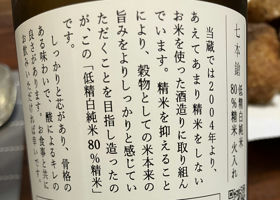 七本鎗 低精白純米
80%精米 火入れ
当蔵では2004年より、
あえてあまり精米をしない
お米を使った酒造りに取り組ん
でいます。精米を抑えること
により、穀物としての米本来の
旨みをよりしっかりと感じてい
ただくことを目指し造ったの
が、この「低精白純米 80%精米」
です。
しっかりと芯があり、骨格の
ある味わいで、酸によるキレの
良さがあります。お食事と共に
お飲みいただければ幸いです。